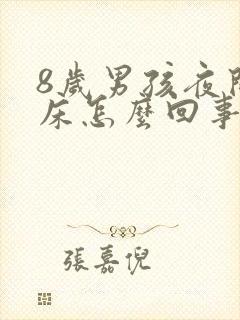 8歲男孩夜間
床怎麼回事
張嘉倪